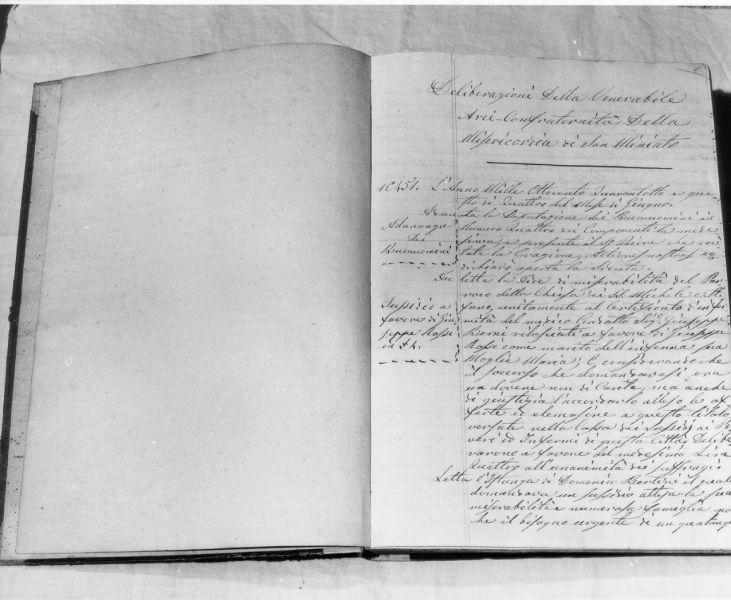 Deliberazioni Della Venerabile
Arci-Confraternita Della
Misericordia di San Miniato
L'Anno Mille Ottocento Quarantotto e que-
sto dì Quattro del Mese di Giugno
Adunanza
dei
Buonuomini
la Deputazione dei Buonuomini in
Numero Quattro dei Componenti la mede-
sima, e presente il
tata la Orazione
dichiarò aperta la Seduta.
Letta la Fede di miserabilità del Par-
roco della Chiesa dei SS. Michele e Ste-
fano, unitamente al Certificato d'infer-
mità del medico
Sussidio a
favore di Giu-
seppe Rossi
rilasciati a favore di Giuseppe
Rossi come marito dell'inferma sua
Moglie Maria; E considerando che
il soccorso che domandavasi era
un dovere non di Carità, ma anche
di giustizia l'accordarlo attese le of-
ferte ed elemosine a questo titolo
versate nella Cassa dei Sussidj ai Po-
veri ed Infermi di questa Città Delibe-
rarono a favore del medesimo Lire
Quattro all'unanimità dei suffragi
Letta l'Istanza di Domenico il quale
domandava un sussidio attesa la sua
miserabilità e numerosa famiglia
che il bisogno urgente di un qualunq